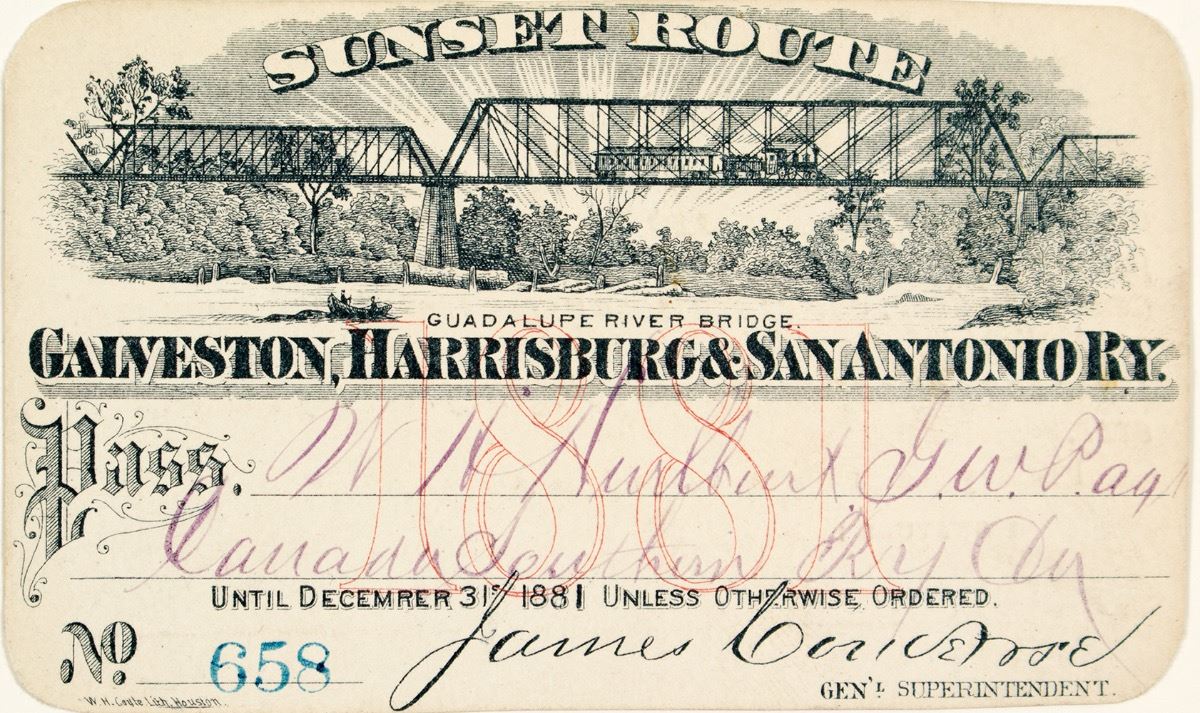 SUNSET ROUTE
GUADALUPE RIVER BRIDGE.
GALVESTON, HARRISBURG & SAN ANTONIO RY.
1881
Pass. W H Hurlburt G.W.P. agt
Canada Southern Ry Co
UNTIL DECEMRER 31ST 1881 UNLESS OTHERWISE ORDERED.
No 658 James Converse
GEN'L SUPERINTENDENT.
W.H. Coyle Lith, Houston.